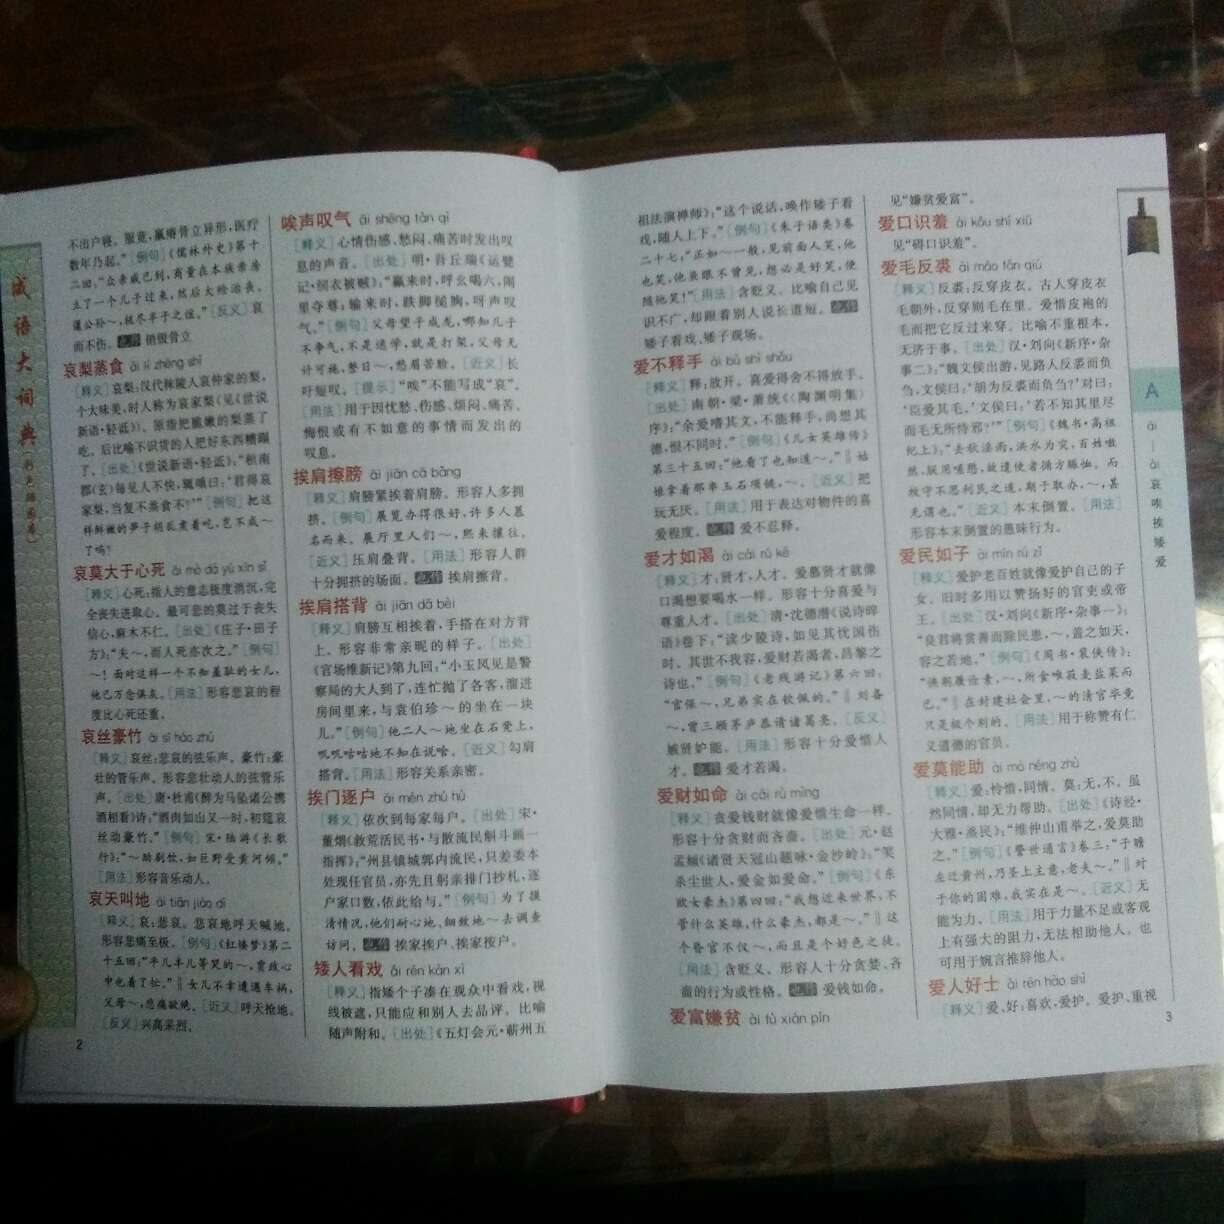 成语大词典(彩色插图卷)
不出户寝。服竟,羸瘠骨立异形,医疗
数年乃起。”[例句]《儒林外史》第十
二回:“众亲戚已到,商量在本族亲房
立了一个儿子过来,然后大殓治丧。
蘧公孙~,极尽半子之谊。”[反义]哀
而不伤。
销毁骨立
哀梨蒸食 āi lí zhēng shí
[释义]哀梨:汉代秣陵人哀仲家的梨,
个大味美,时人称为哀家梨(见《世说
新语·轻诋》)。原指把脆嫩的梨蒸了
吃。后比喻不识货的人把好东西糟蹋
了。[出处]《世说新语·轻诋》:“桓南
郡(玄)每见人不快,辄嗔曰:‘君得哀
家梨,当复不蒸食不?’”[例句]把这
样鲜嫩的笋子胡乱煮着吃,岂不成~
了吗?
哀莫大于心死 āi mò dà yú xīn sǐ
[释义]心死:指人的意志极度消沉,完
全丧失进取心。最可悲的莫过于丧失
信心,麻木不仁。[出处]《庄子·田子
方》:“夫~,而人死亦次之。”[例句]
~!面对这样一个不知羞耻的女儿,
他已万念俱灰。[用法]形容悲哀的程
度比心死还重。
哀丝豪竹 āi sī háo zhú
[释义]哀丝:悲哀的弦乐声。豪竹:豪
壮的管乐声。形容悲壮动人的弦管乐
声。[出处]唐·杜甫《醉为马坠诸公携
酒相看》诗:“酒肉如山又一时,初筵哀
丝动豪竹。”[例句]宋·陆游《长歌
行》:“~助剧饮,如巨野受黄河倾。”
[用法]形容音乐动人。
哀天叫地 āi tiān jiào dì
[释义]哀:悲哀。悲哀地呼天喊地。
形容悲痛至极。[例句]《红楼梦》第二
十五回:“平儿丰儿等哭的~,贾政心
中也着了忙。”‖女儿不幸遭遇车祸,
父母~,悲痛欲绝。[近义]呼天抢地。
[反义]兴高采烈。
2
唉声叹气 āi shēng tàn qì
[释义]心情伤感、愁闷、痛苦时发出叹
息的声音。[出处]明·吾丘瑞《运甓
记·捐衣被贼》:“赢来时,呼幺喝六,闹
里夺尊;输来时,跌脚槌胸,呀声叹
气。”[例句]父母望子成龙,哪知儿子
不争气,不是逃学,就是打架,父母无
计可施,整日~,愁眉苦脸。[近义]长
吁短叹。[提示]“唉”不能写成“哀”。
[用法]用于因忧愁、伤感、烦闷、痛苦、
悔恨或有不如意的事情而发出的
叹息。
挨肩擦膀 āi jiān cā bǎng
[释义]肩膀紧挨着肩膀。形容人多拥
挤。[例句]展览办得很好,许多人慕
名而来。展厅里人们~,熙来攘往。
[近义]压肩叠背。[用法]形容人群
十分拥挤的场面。
挨肩擦背。
挨肩搭背 āi jiān dā bèi
[释义]肩膀互相挨着,手搭在对方背
上。形容非常亲昵的样子。[出处]
《官场维新记》第九回:“小玉凤见是警
察局的大人到了,连忙抛了各客,溜进
房间里来,与袁伯珍~的坐在一块
儿。”[例句]他二人~地坐在石凳上,
叽叽咕咕地不知在说啥。[近义]勾肩
搭背。[用法]形容关系亲密。
挨门逐户 āi mén zhú hù
[释义]依次到每家每户。[出处]宋·
董煟《救荒活民书·与散流民斛斗画一
指挥》:“州县镇城郭内流民,只差委本
处现任官员,亦先且躬亲排门抄札,逐
户家口数,依此给与。”[例句]为了摸
清情况,他们耐心地、细致地~去调查
访问。
挨家挨户、挨家按户。
矮人看戏 ǎi rén kàn xì
[释义]指矮个子凑在观众中看戏,视
线被遮,只能应和别人去品评。比喻
随声附和。[出处]《五灯会元·蕲州五
祖法演禅师》:“这个说话,唤作矮子看
戏,随人上下。”[例句]《朱子语类》卷
二十七:“正如~一般,见前面人笑,他
也笑,他虽眼不曾见,想必是好笑,便
随他笑!”[用法]含贬义。比喻自己见
识不广,却跟着别人说长道短。
矮子看戏、矮子观场。
爱不释手 ài bù shì shǒu
[释义]释:放开。喜爱得舍不得放手。
[出处]南朝·梁·萧统《〈陶渊明集〉
序》:“余爱嗜其文,不能释手,尚想其
德,恨不同时。”[例句]《儿女英雄传》
第三十五回:“他看了也知道~。”‖姑
娘拿着那串玉石项链,~。[近义]把
玩无厌。[用法]用于表达对物件的喜
爱程度。
爱不忍释。
爱才如渴 ài cái rú kě
[释义]才:贤才,人才。爱慕贤才就像
口渴想要喝水一样。形容十分喜爱与
尊重人才。[出处]清·沈德潜《说诗晬
语》卷下:“读少陵诗,如见其忧国伤
时。其世不我容,爱才若渴者,昌黎之
诗也。”[例句]《老残游记》第六回:
“宫保~,兄弟实在钦佩的。”‖刘备
~,曾三顾茅庐恭请诸葛亮。[反义]
嫉贤妒能。[用法]形容十分爱惜人
才。
爱才若渴。
爱财如命 ài cái rú mìng
[释义]贪爱钱财就像爱惜生命一样。
形容十分贪财而吝啬。[出处]元·赵
孟頫《诸贤天冠山题咏·金沙岭》:“笑
杀尘世人,爱金如爱命。”[例句]《东
欧女豪杰》第四回:“我想近来世界,不
管什么英雄,什么豪杰,都是~。”‖这
个昏官不仅~,而且是个好色之徒。
[用法]含贬义。形容人十分贪婪、吝
啬的行为或性格。
爱钱如命。
爱富嫌贫 ài fù xián pín
见“嫌贫爱富”。
爱口识羞 ài kǒu shí xiū
见“碍口识羞”。
爱毛反裘 ài máo fǎn qiú
[释义]反裘:反穿皮衣。古人穿皮衣
毛朝外,反穿则毛在里。爱惜皮袍的
毛而把它反过来穿。比喻不重根本,
无济于事。[出处]汉·刘向《新序·杂
事二》:“魏文侯出游,见路人反裘而负
刍,文侯曰:‘胡为反裘而负刍?’对曰:
‘臣爱其毛。’文侯曰:‘若不知其里尽
而毛无所恃邪?’”[例句]《魏书·高祖
纪上》:“去秋淫雨,洪水为灾,百姓嗷
然,朕用嗟愍,故遣使者循方赈恤。而
牧守不思利民之道,期于取办。~,甚
无谓也。”[近义]本末倒置。[用法]
形容本末倒置的愚昧行为。
爱民如子 ài mín rú zǐ
[释义]爱护老百姓就像爱护自己的子
女。旧时多用以赞扬好的官吏或帝
王。[出处]汉·刘向《新序·杂事一》:
“良君将赏善而除民患,~,盖之如天,
容之若地。”[例句]《周书·裴侠传》:
“侠躬履俭素,~,所食唯菽麦盐菜而
已。”‖在封建社会里,~的清官毕竟
只是极个别的。[用法]用于称赞有仁
义道德的官员。
爱莫能助 ài mò néng zhù
[释义]爱:怜惜,同情。莫:无,不。虽
然同情,却无力帮助。[出处]《诗经·
大雅·烝民》:“维仲山甫举之,爱莫助
之。”[例句]《警世通言》卷三:“子瞻
左迁黄州,乃圣上主意,老夫~。”‖对
于你的困难,我实在是~。[近义]无
能为力。[用法]用于力量不足或客观
上有强大的阻力,无法相助他人。也
可用于婉言推辞他人。
爱人好士 ài rén hào shì
[释义]爱、好:喜欢,爱护。爱护、重视
A
āi
|
ài
哀
唉
挨
矮
爱
3